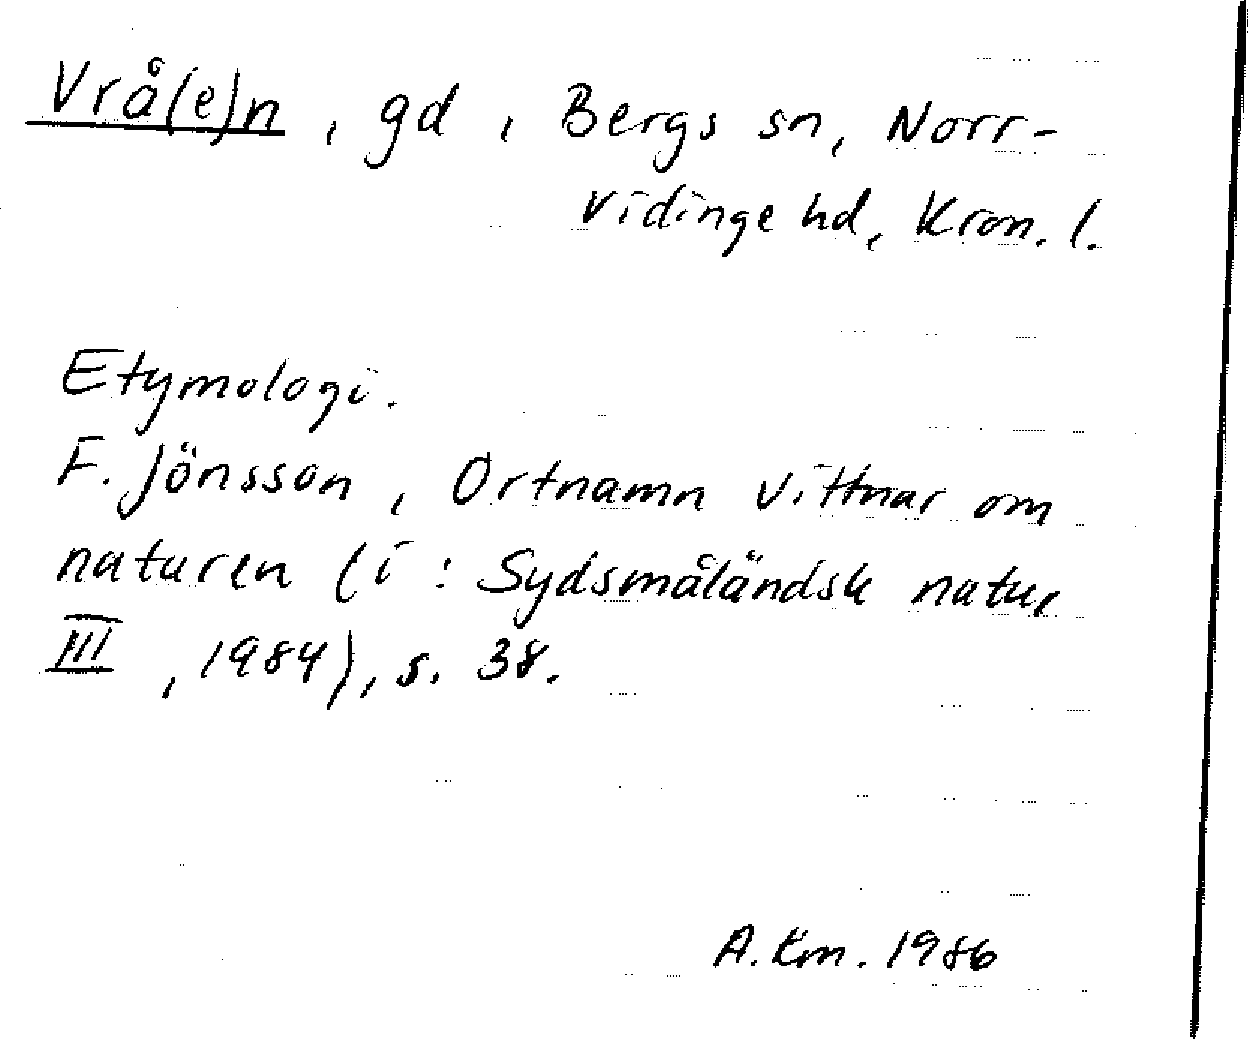 Vrå(e)n, gd, Bergs sn, Norr-
vidinge hd, Kron. l.
Etymologi.
F. Jönsson, Ortnamn vittnar om
naturen (i: Sydsmåländsk natur
III, 1984), s. 38.
A. Km. 1986